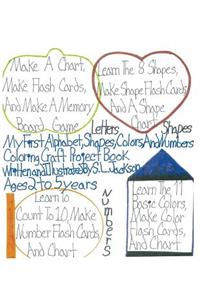 Make A Chart,
Make Flash Cards,
And Make A Memory
Board Game
Learn The 8 Shapes,
Make Shape Flash Cards
And A Shape
Chart
Letters
Shapes
My First Alphabet, Shapes, Colors, And Numbers
Coloring Craft Project Book
Written and Illustrated By: S. L. Jackson
Ages 2 to 5 years
Learn To
Count To 10, Make
Number Flash Cards
And Chart
Numbers
Learn The 11
Basic Colors,
Make Color
Flash Cards,
And Chart